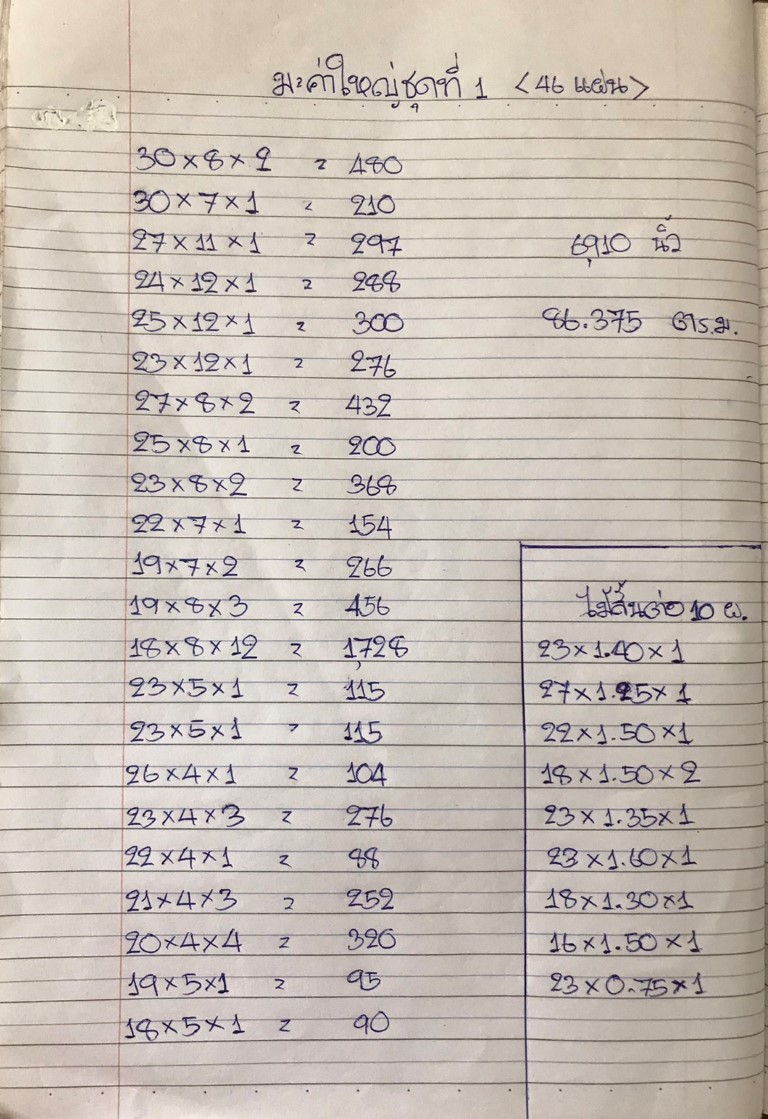 มะค่าใหญ่ชุดที่ 1 <46 แผ่น>
30×8×2 = 480
30×7×1 = 210
27×11×1 = 297
6,910 นิ้ว
24×12×1 = 288
25×12×1 = 300
86.375 ตร.ม.
23×12×1 = 276
27×8×2 = 432
25×8×1 = 200
23×8×2 = 368
22×7×1 = 154
19×7×2 = 266
19×8×3 = 456
18×8×12 = 1,728
23×5×1 = 115
23×5×1 = 115
26×4×1 = 104
23×4×3 = 276
22×4×1 = 88
21×4×3 = 252
20×4×4 = 320
19×5×1 = 95
18×5×1 = 90
ไม้สั้นต่อ 10 ผ.
23×1.40×1
27×1.25×1
22×1.50×1
18×1.50×2
23×1.35×1
23×1.60×1
18×1.30×1
16×1.50×1
23×0.75×1